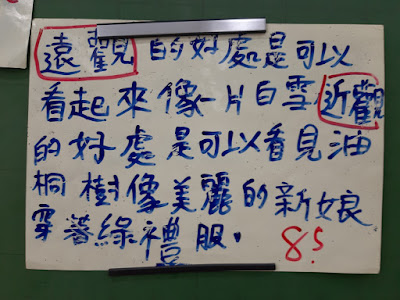 遠觀的好處是可以
看起來像一片白雪近觀
的好處是可以看見油
桐樹像美麗的新娘
穿著綠禮服。
85